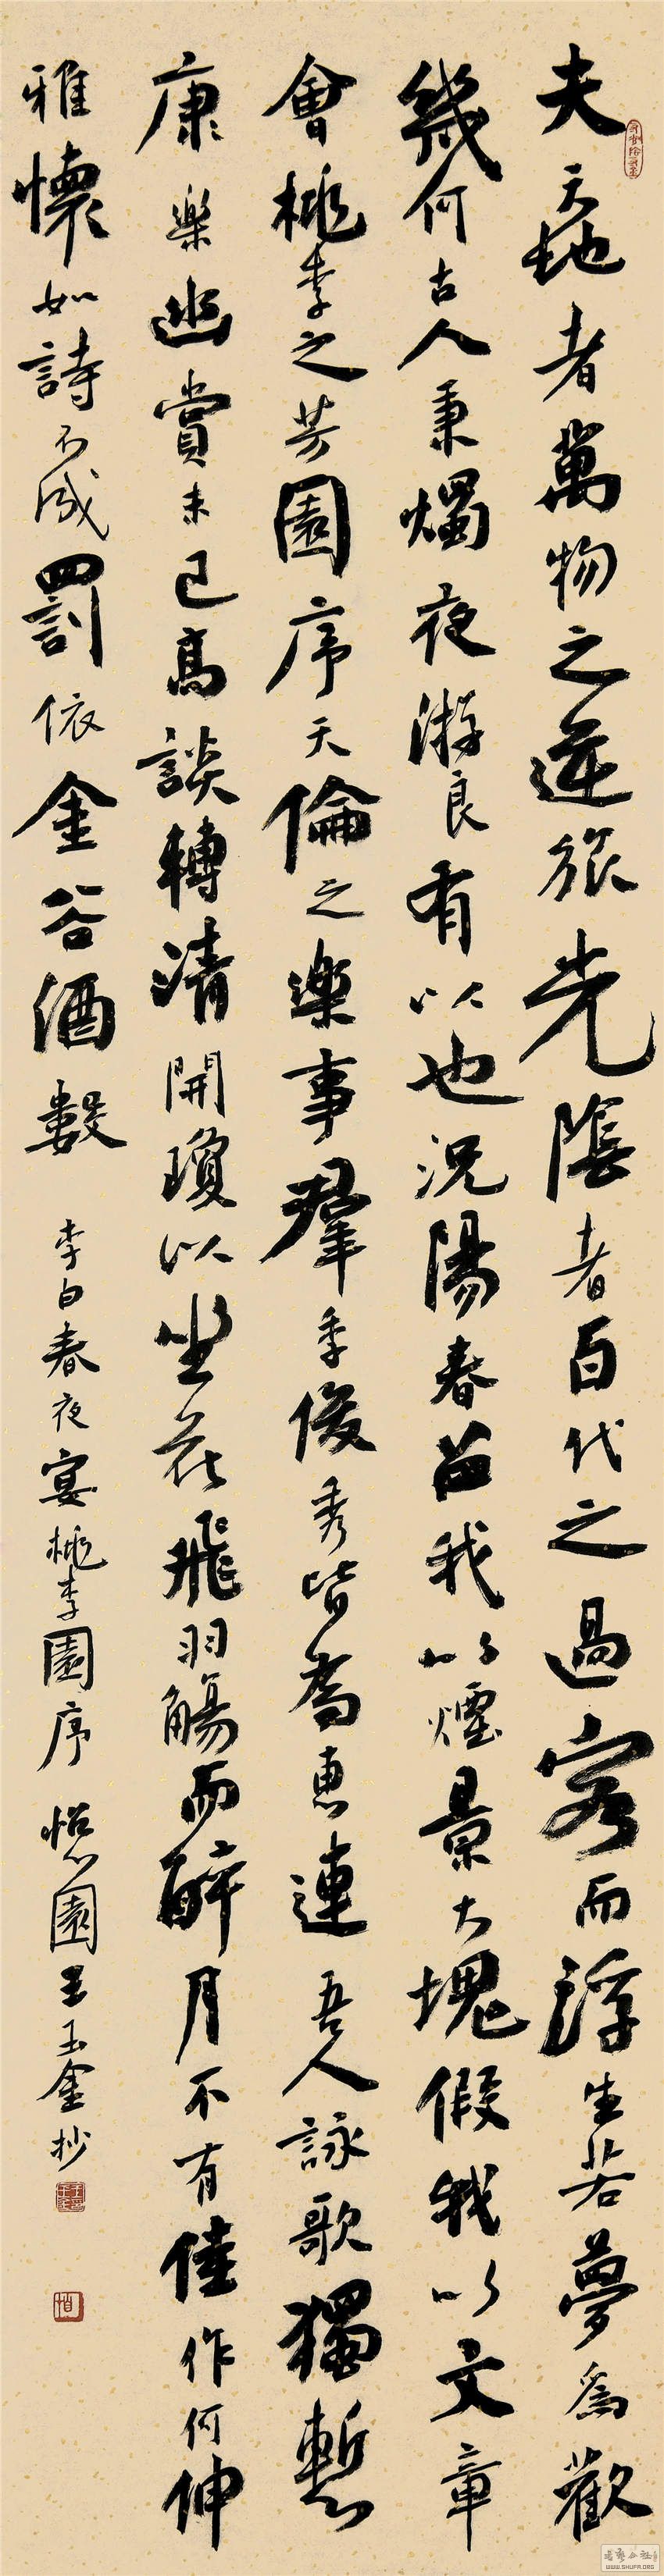 夫天地者萬物之逆旅光陰者百代之過客而浮生若夢為歡
幾何古人秉燭夜游良有以也況陽春召我以煙景大塊假我以文章
會桃李之芳園序天倫之樂事群季俊秀皆為惠連吾人詠歌獨慙
康樂幽賞未已高談轉清開瓊以坐花飛羽觴而醉月不有佳作何伸
雅懷如詩不成罰依金谷酒數
李白春夜宴桃李園序 怡園王玉金抄
WWW.SHUFA.ORG